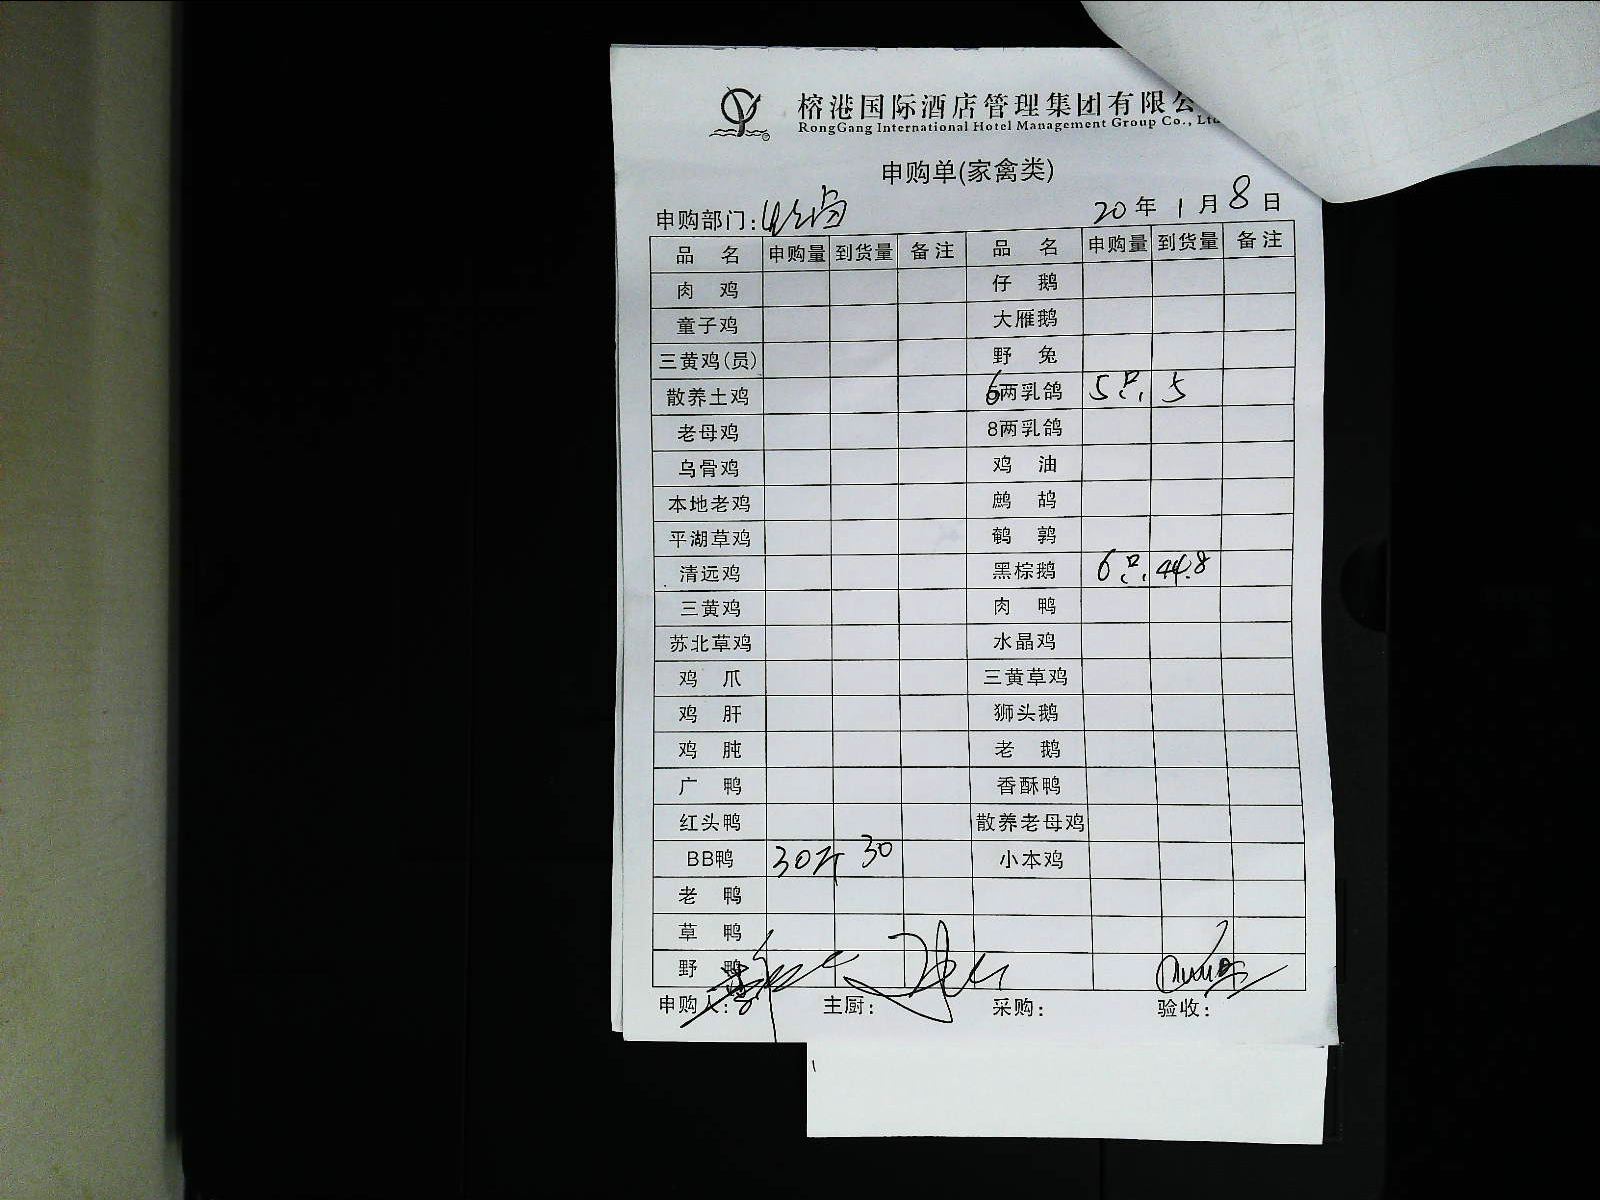 榕港国际酒店管理集团有限公
RongGang International Hotel Management Group Co., Ltd
申购单(家禽类)
申购部门: 20年 1月 8日
品 名 申购量 到货量 备注 品 名 申购量 到货量 备注
肉 鸡 仔 鹅
童子鸡 大雁鹅
三黄鸡(员) 野 兔
散养土鸡 6两乳鸽 5只 5
老母鸡 8两乳鸽
乌骨鸡 鸡 油
本地老鸡 鹧 鸪
平湖草鸡 鹌 鹑
清远鸡 黑棕鹅 6只 44.8
三黄鸡 肉 鸭
苏北草鸡 水晶鸡
鸡 爪 三黄草鸡
鸡 肝 狮头鹅
鸡 肫 老 鹅
广 鸭 香酥鸭
红头鸭 散养老母鸡
BB鸭 30斤 30 小本鸡
老 鸭
草 鸭
野 鸭
申购人: 主厨: 采购: 验收: